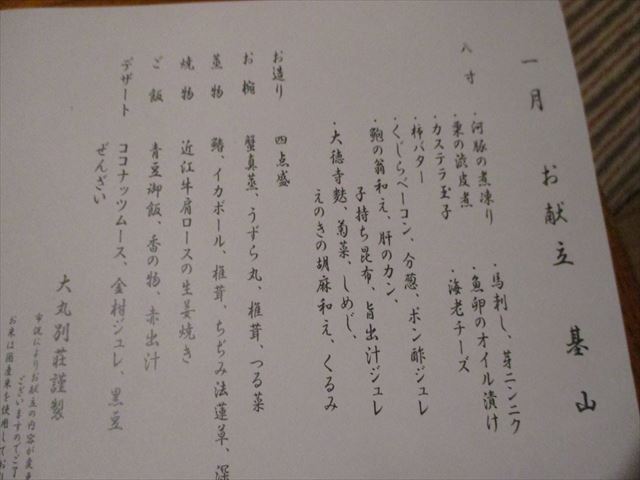 一月 お献立 基山
八寸
・河豚の煮凍り ・馬刺し、芽ニンニク
・栗の渋皮煮 ・魚卵のオイル漬け
・カステラ玉子 ・海老チーズ
・柿バター
・くじらベーコン、分葱、ポン酢ジュレ
・鮑の翁和え、肝のカン、
子持ち昆布、旨出汁ジュレ
・大徳寺麩、菊菜、しめじ、
えのきの胡麻和え、くるみ
お造り 四点盛
お椀 蟹真蒸、うずら丸、椎茸、つる菜
蒸物 鰆、イカボール、椎茸、ちぢみ法蓮草、深
焼物 近江牛肩ロースの生姜焼き
ご飯 青豆御飯、香の物、赤出汁
デザート ココナッツムース、金柑ジュレ、黒豆
ぜんざい
大丸別荘謹製
市況によりお献立の内容が変
ございますのでご了
お米は国産米を使用してお